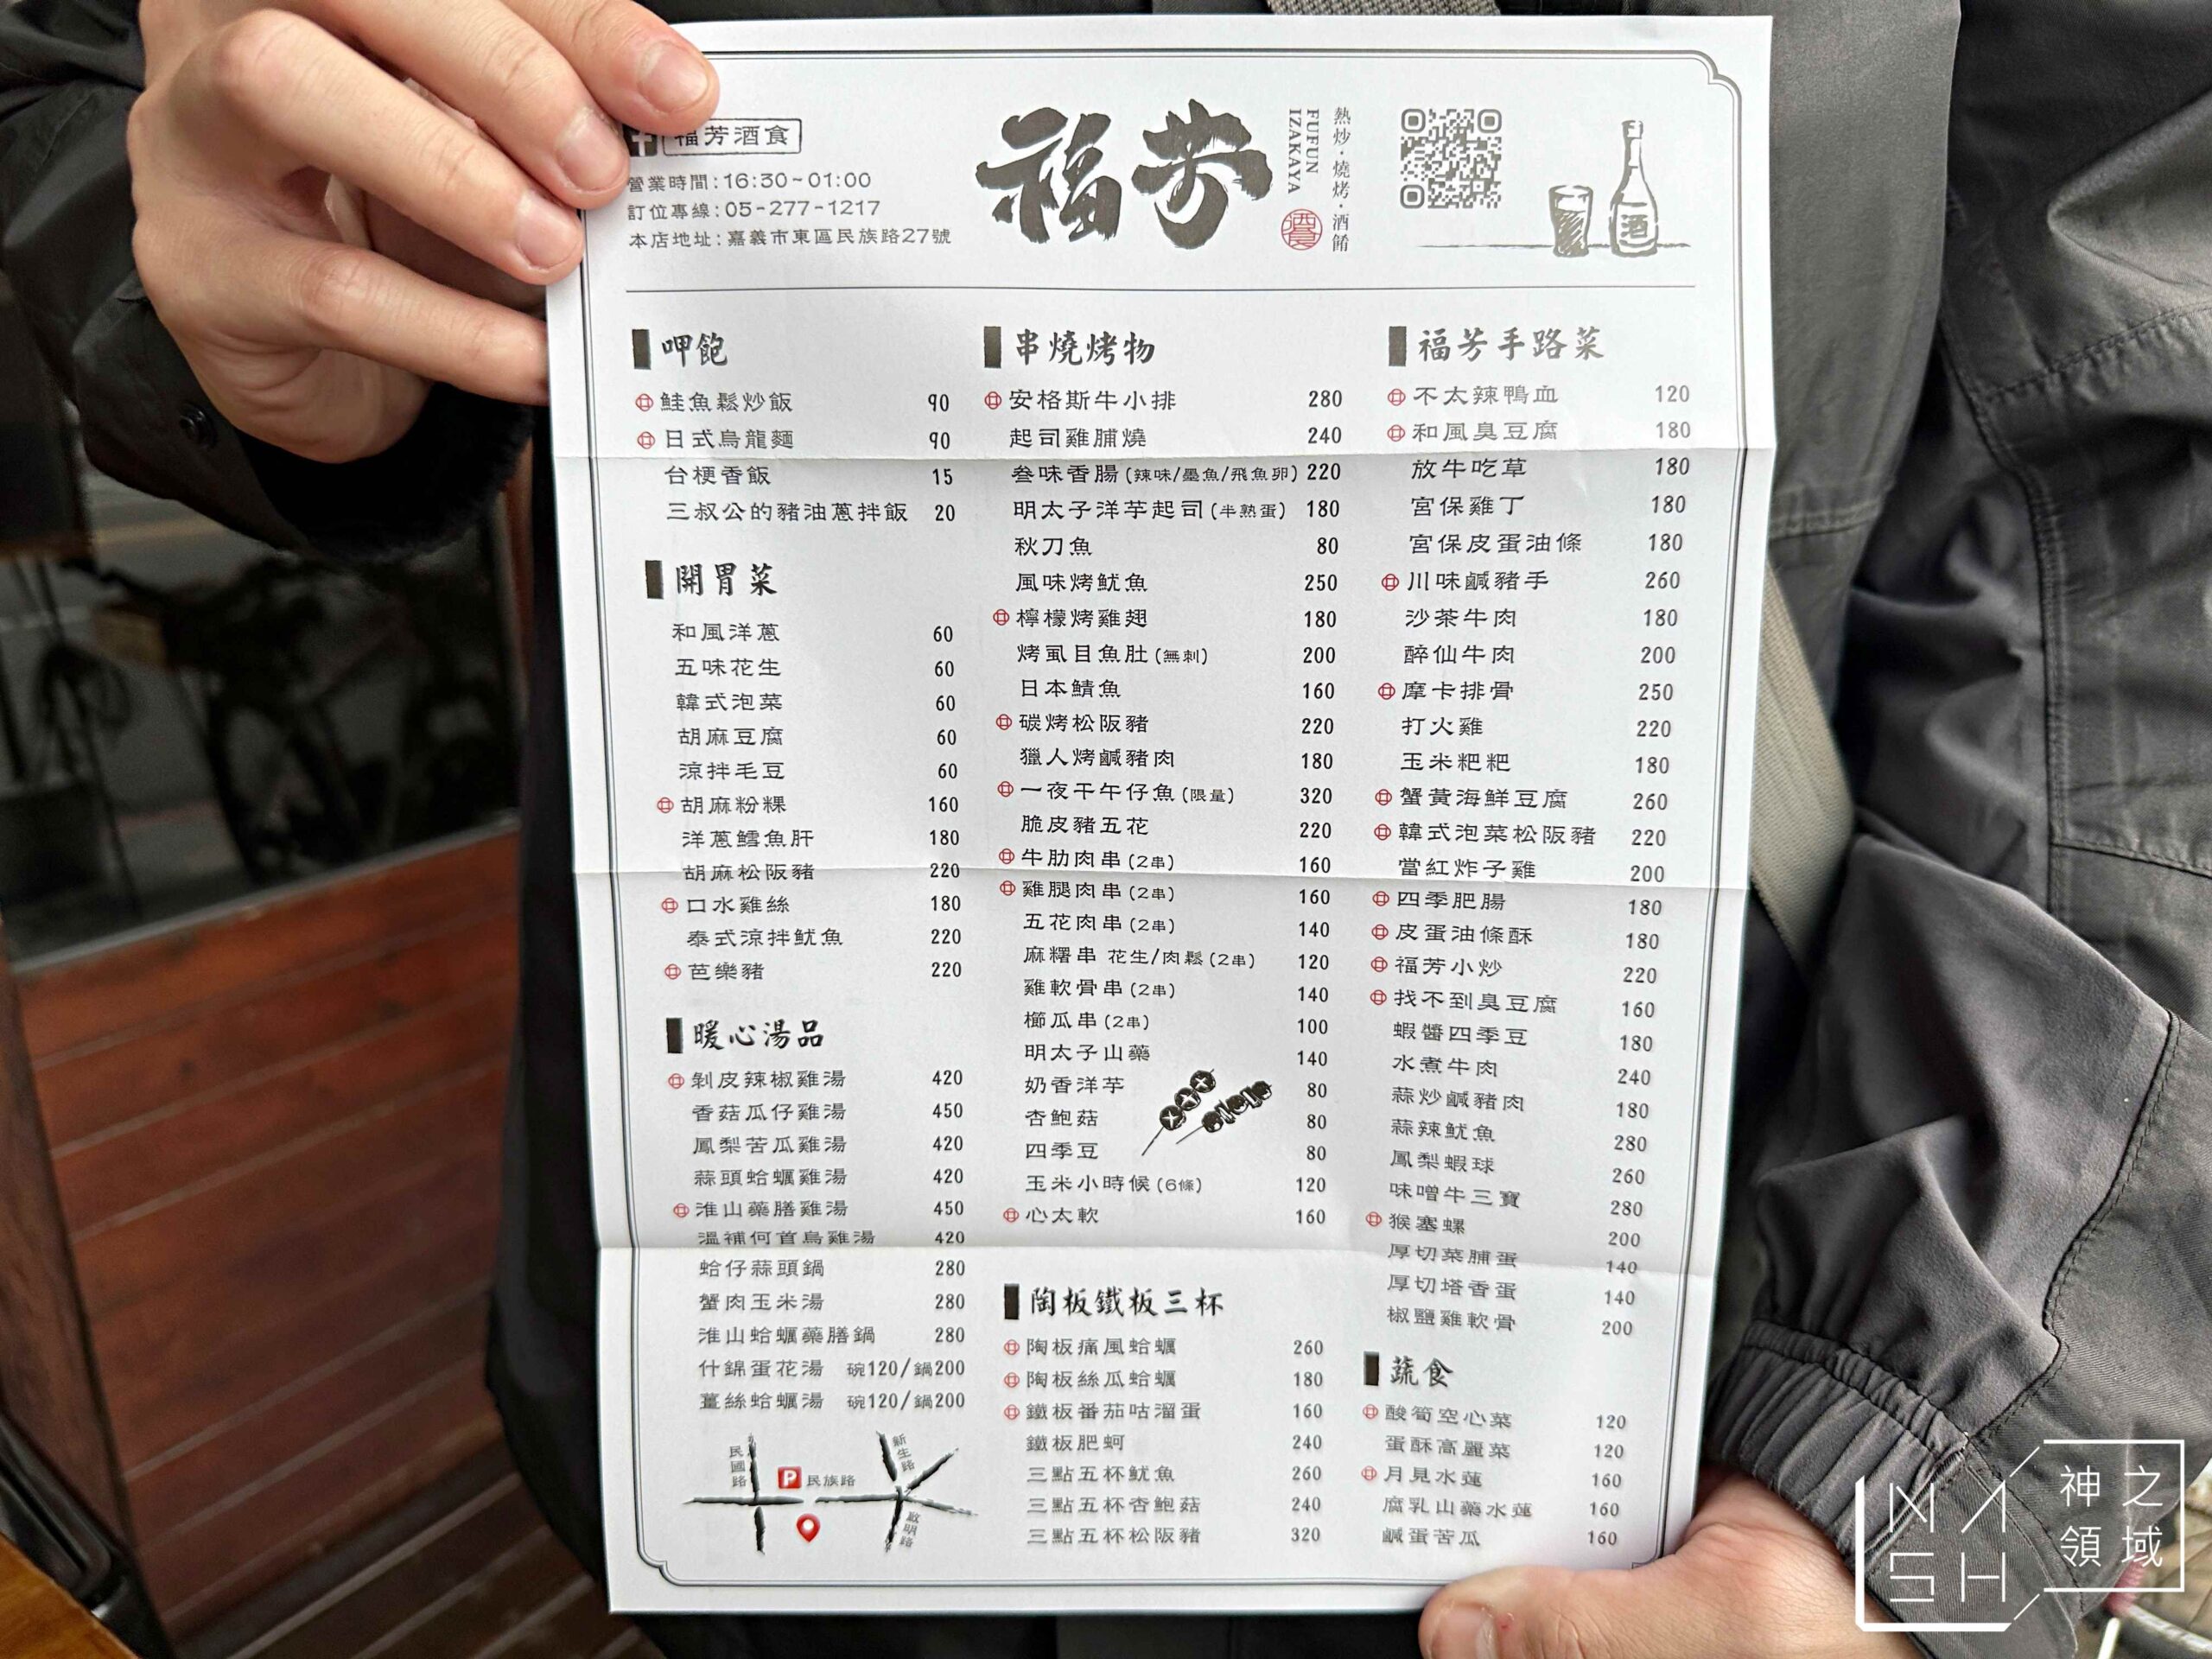 福芳酒食
營業時間:16:30~01:00
訂位專線:05-277-1217
本店地址:嘉義市東區民族路27號
福芳
FUFUN IZAKAYA
熱炒·燒烤·酒餚
酒食
酒
呷飽
鮭魚鬆炒飯 90
日式烏龍麵 90
台梗香飯 15
三叔公的豬油蔥拌飯 20
開胃菜
和風洋蔥 60
五味花生 60
韓式泡菜 60
胡麻豆腐 60
涼拌毛豆 60
胡麻粉粿 160
洋蔥鱈魚肝 180
胡麻松阪豬 220
口水雞絲 180
泰式涼拌魷魚 220
芭樂豬 220
暖心湯品
剝皮辣椒雞湯 420
香菇瓜仔雞湯 450
鳳梨苦瓜雞湯 420
蒜頭蛤蠣雞湯 420
淮山藥膳雞湯 450
溫補何首烏雞湯 420
蛤仔蒜頭鍋 280
蟹肉玉米湯 280
淮山蛤蠣藥膳鍋 280
什錦蛋花湯 碗120/鍋200
薑絲蛤蠣湯 碗120/鍋200
民國路
P 民族路
新生路
啟明路
串燒烤物
安格斯牛小排 280
起司雞脯燒 240
叁味香腸(辣味/墨魚/飛魚卵) 220
明太子洋芋起司(半熟蛋) 180
秋刀魚 80
風味烤魷魚 250
檸檬烤雞翅 180
烤虱目魚肚(無刺) 200
日本鯖魚 160
碳烤松阪豬 220
獵人烤鹹豬肉 180
一夜干午仔魚(限量) 320
脆皮豬五花 220
牛肋肉串(2串) 160
雞腿肉串(2串) 160
五花肉串(2串) 140
麻糬串 花生/肉鬆(2串) 120
雞軟骨串(2串) 140
櫛瓜串(2串) 100
明太子山藥 140
奶香洋芋 80
杏鮑菇 80
四季豆 80
玉米小時候(6條) 120
心太軟 160
陶板鐵板三杯
陶板痛風蛤蠣 260
陶板絲瓜蛤蠣 180
鐵板番茄咕溜蛋 160
鐵板肥蚵 240
三點五杯魷魚 260
三點五杯杏鮑菇 240
三點五杯松阪豬 320
福芳手路菜
不太辣鴨血 120
和風臭豆腐 180
放牛吃草 180
宮保雞丁 180
宮保皮蛋油條 180
川味鹹豬手 260
沙茶牛肉 180
醉仙牛肉 200
摩卡排骨 250
打火雞 220
玉米粑粑 180
蟹黃海鮮豆腐 260
韓式泡菜松阪豬 220
當紅炸子雞 200
四季肥腸 180
皮蛋油條酥 180
福芳小炒 220
找不到臭豆腐 160
蝦醬四季豆 180
水煮牛肉 240
蒜炒鹹豬肉 180
蒜辣魷魚 280
鳳梨蝦球 260
味噌牛三寶 280
猴塞螺 200
厚切菜脯蛋 140
厚切塔香蛋 140
椒鹽雞軟骨 200
蔬食
酸筍空心菜 120
蛋酥高麗菜 120
月見水蓮 160
腐乳山藥水蓮 160
鹹蛋苦瓜 160
MASH
神之領域